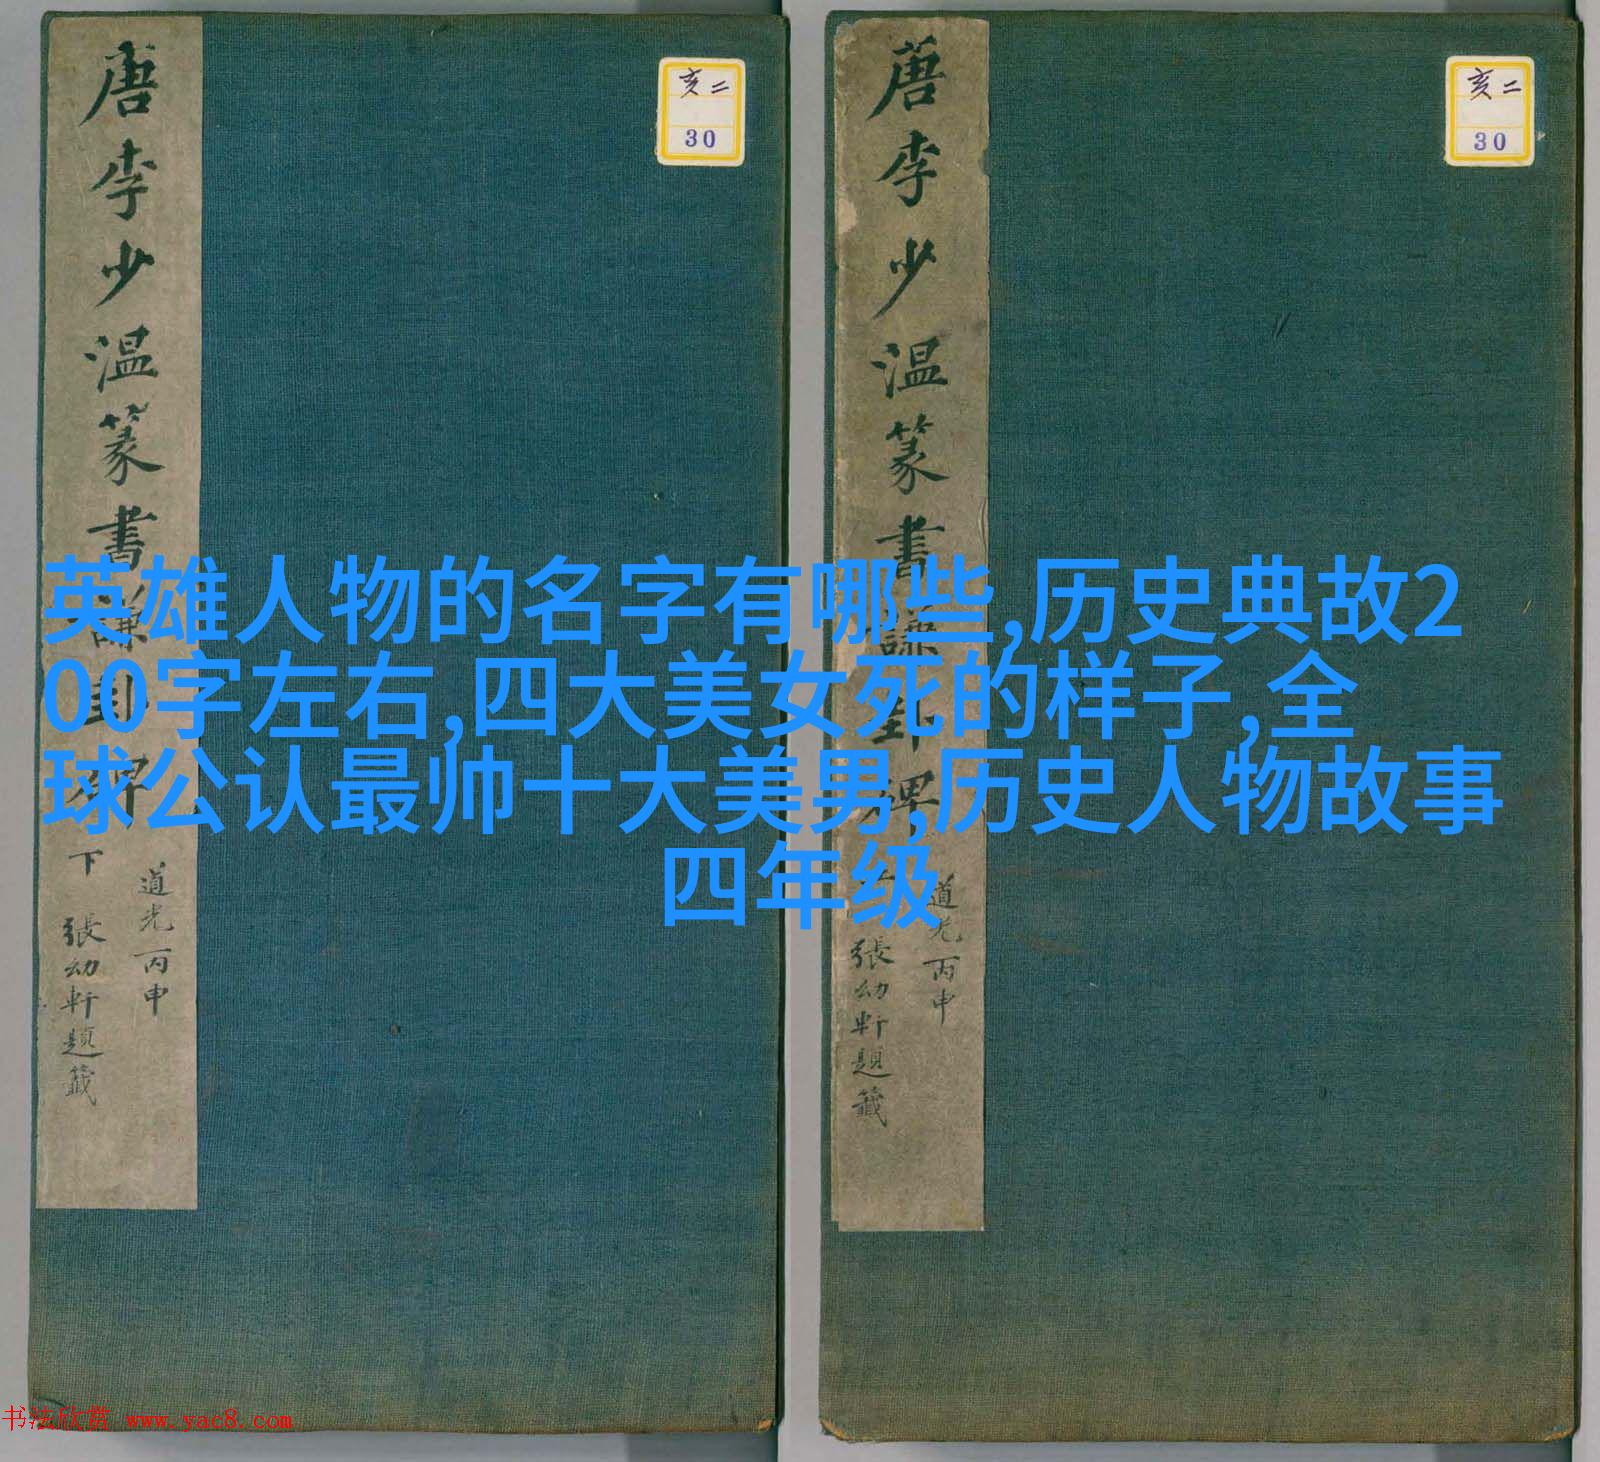 唐李少温篆書謙卦碑
下
道光丙申
張幼軒題籤
亥二
30
唐李少温篆書謙卦碑
道光丙申
張幼軒題籤
亥二
30
英雄人物的名字有哪些,历史典故2
00字左右,四大美女死的样子,全
球公认最帅十大美男,历史人物故事
四年级
书法欣赏 www.yac8.com